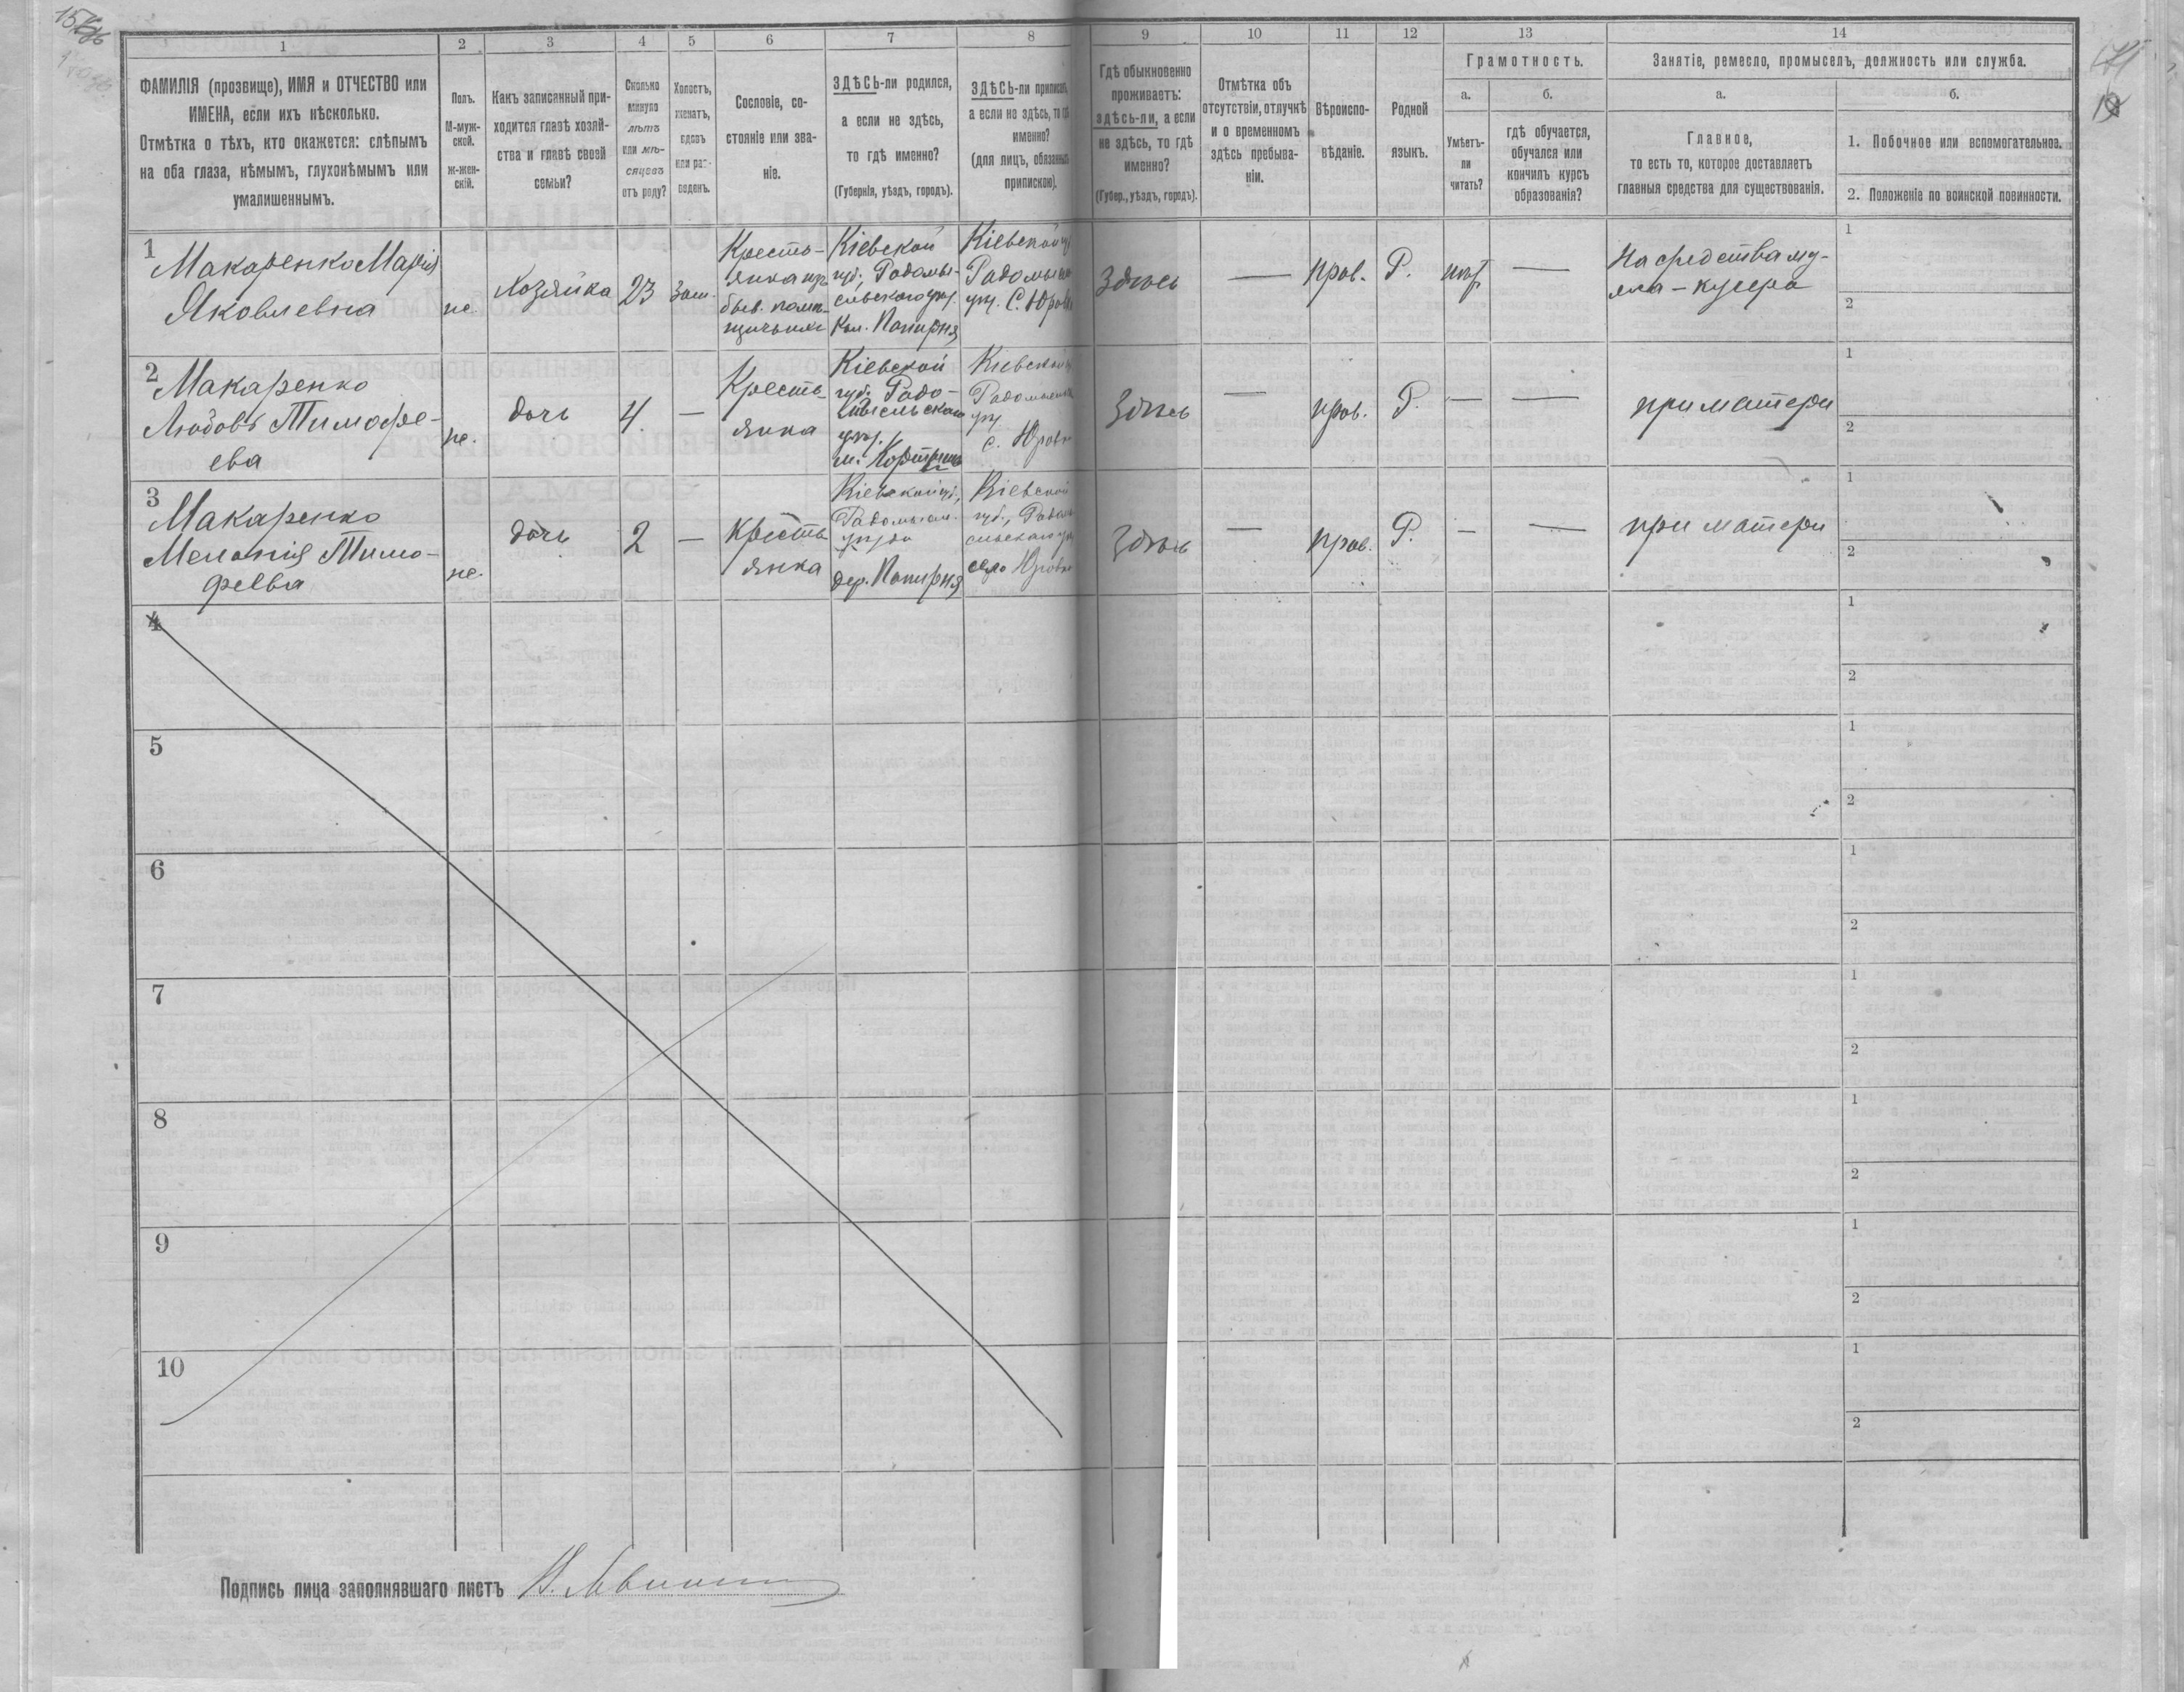 1 2 3 4 5 6 7 8 9 10 11 12 13 14
ФАМИЛІЯ (прозвище), ИМЯ и ОТЧЕСТВО или
ИМЕНА, если ихъ нѣсколько.
Отмѣтка о тѣхъ, кто окажется: слѣпымъ
на оба глаза, нѣмымъ, глухонѣмымъ или
умалишеннымъ.
Полъ.
М-муж-
ской.
ж-жен-
скій.
Какъ записанный при-
ходится главѣ хозяй-
ства и главѣ своей
семьи?
Сколько
минуло
лѣтъ
или мѣ-
сяцевъ
отъ роду?
Холостъ,
женатъ,
вдовъ
или раз-
веденъ.
Сословіе, со-
стояніе или зва-
ніе.
ЗДѢСЬ-ли родился,
а если не здѣсь,
то гдѣ именно?
(Губернія, уѣздъ, городъ).
ЗДѢСЬ-ли приписанъ,
а если не здѣсь, то гдѣ
именно?
(для лицъ, обязанныхъ
припискою).
Гдѣ обыкновенно
проживаетъ:
здѣсь-ли, а если
не здѣсь, то гдѣ
именно?
(Губер., уѣздъ, городъ).
Отмѣтка объ
отсутствіи, отлучкѣ
и о временномъ
здѣсь пребыва-
ніи.
Вѣроиспо-
вѣданіе.
Родной
языкъ.
Грамотность.
а.
Умѣетъ-
ли
читать?
б.
гдѣ обучается,
обучался или
кончилъ курсъ
образованія?
Занятіе, ремесло, промыселъ, должность или служба.
а.
Главное,
то есть то, которое доставляетъ
главныя средства для существованія.
б.
1. Побочное или вспомогательное.
2. Положеніе по воинской повинности.
1
Макаренко Марія
Яковлевна
же
Хозяйка
23
зам.
Кресть-
янка изъ
быв. помѣ-
щичьихъ
Кіевской
губ., Радомы-
сльского уѣз.
Кол. Папирня
Кіевской
Радомысл
уѣз. С. Юров
Здѣсь
—
прав.
Р.
нѣт
—
На средства му-
жа - кучера
1
2
2
Макаренко
Любовь Тимофе-
ева
же.
дочь
4
—
Кресть-
янка
Кіевской
губ. Радо-
мысльскаго
уѣз.
м. Коростыш
Кіевской
Радомысл
уѣз
с. Юровк
Здѣсь
—
прав.
Р.
—
—
при матери
1
2
3
Макаренко
Меланія Тимо-
феева
же.
дочь
2
—
Кресть
янка
Кіевской губ.,
Радомысл.
уѣзда
дер. Папирня
Кіевской
губ., Радом
сльскаго уѣз
село Юровк
Здѣсь
—
прав.
Р.
—
—
при матери
1
2
4
1
2
5
1
2
6
1
2
7
1
2
8
1
2
9
1
2
10
1
2
Подпись лица заполнявшаго листъ